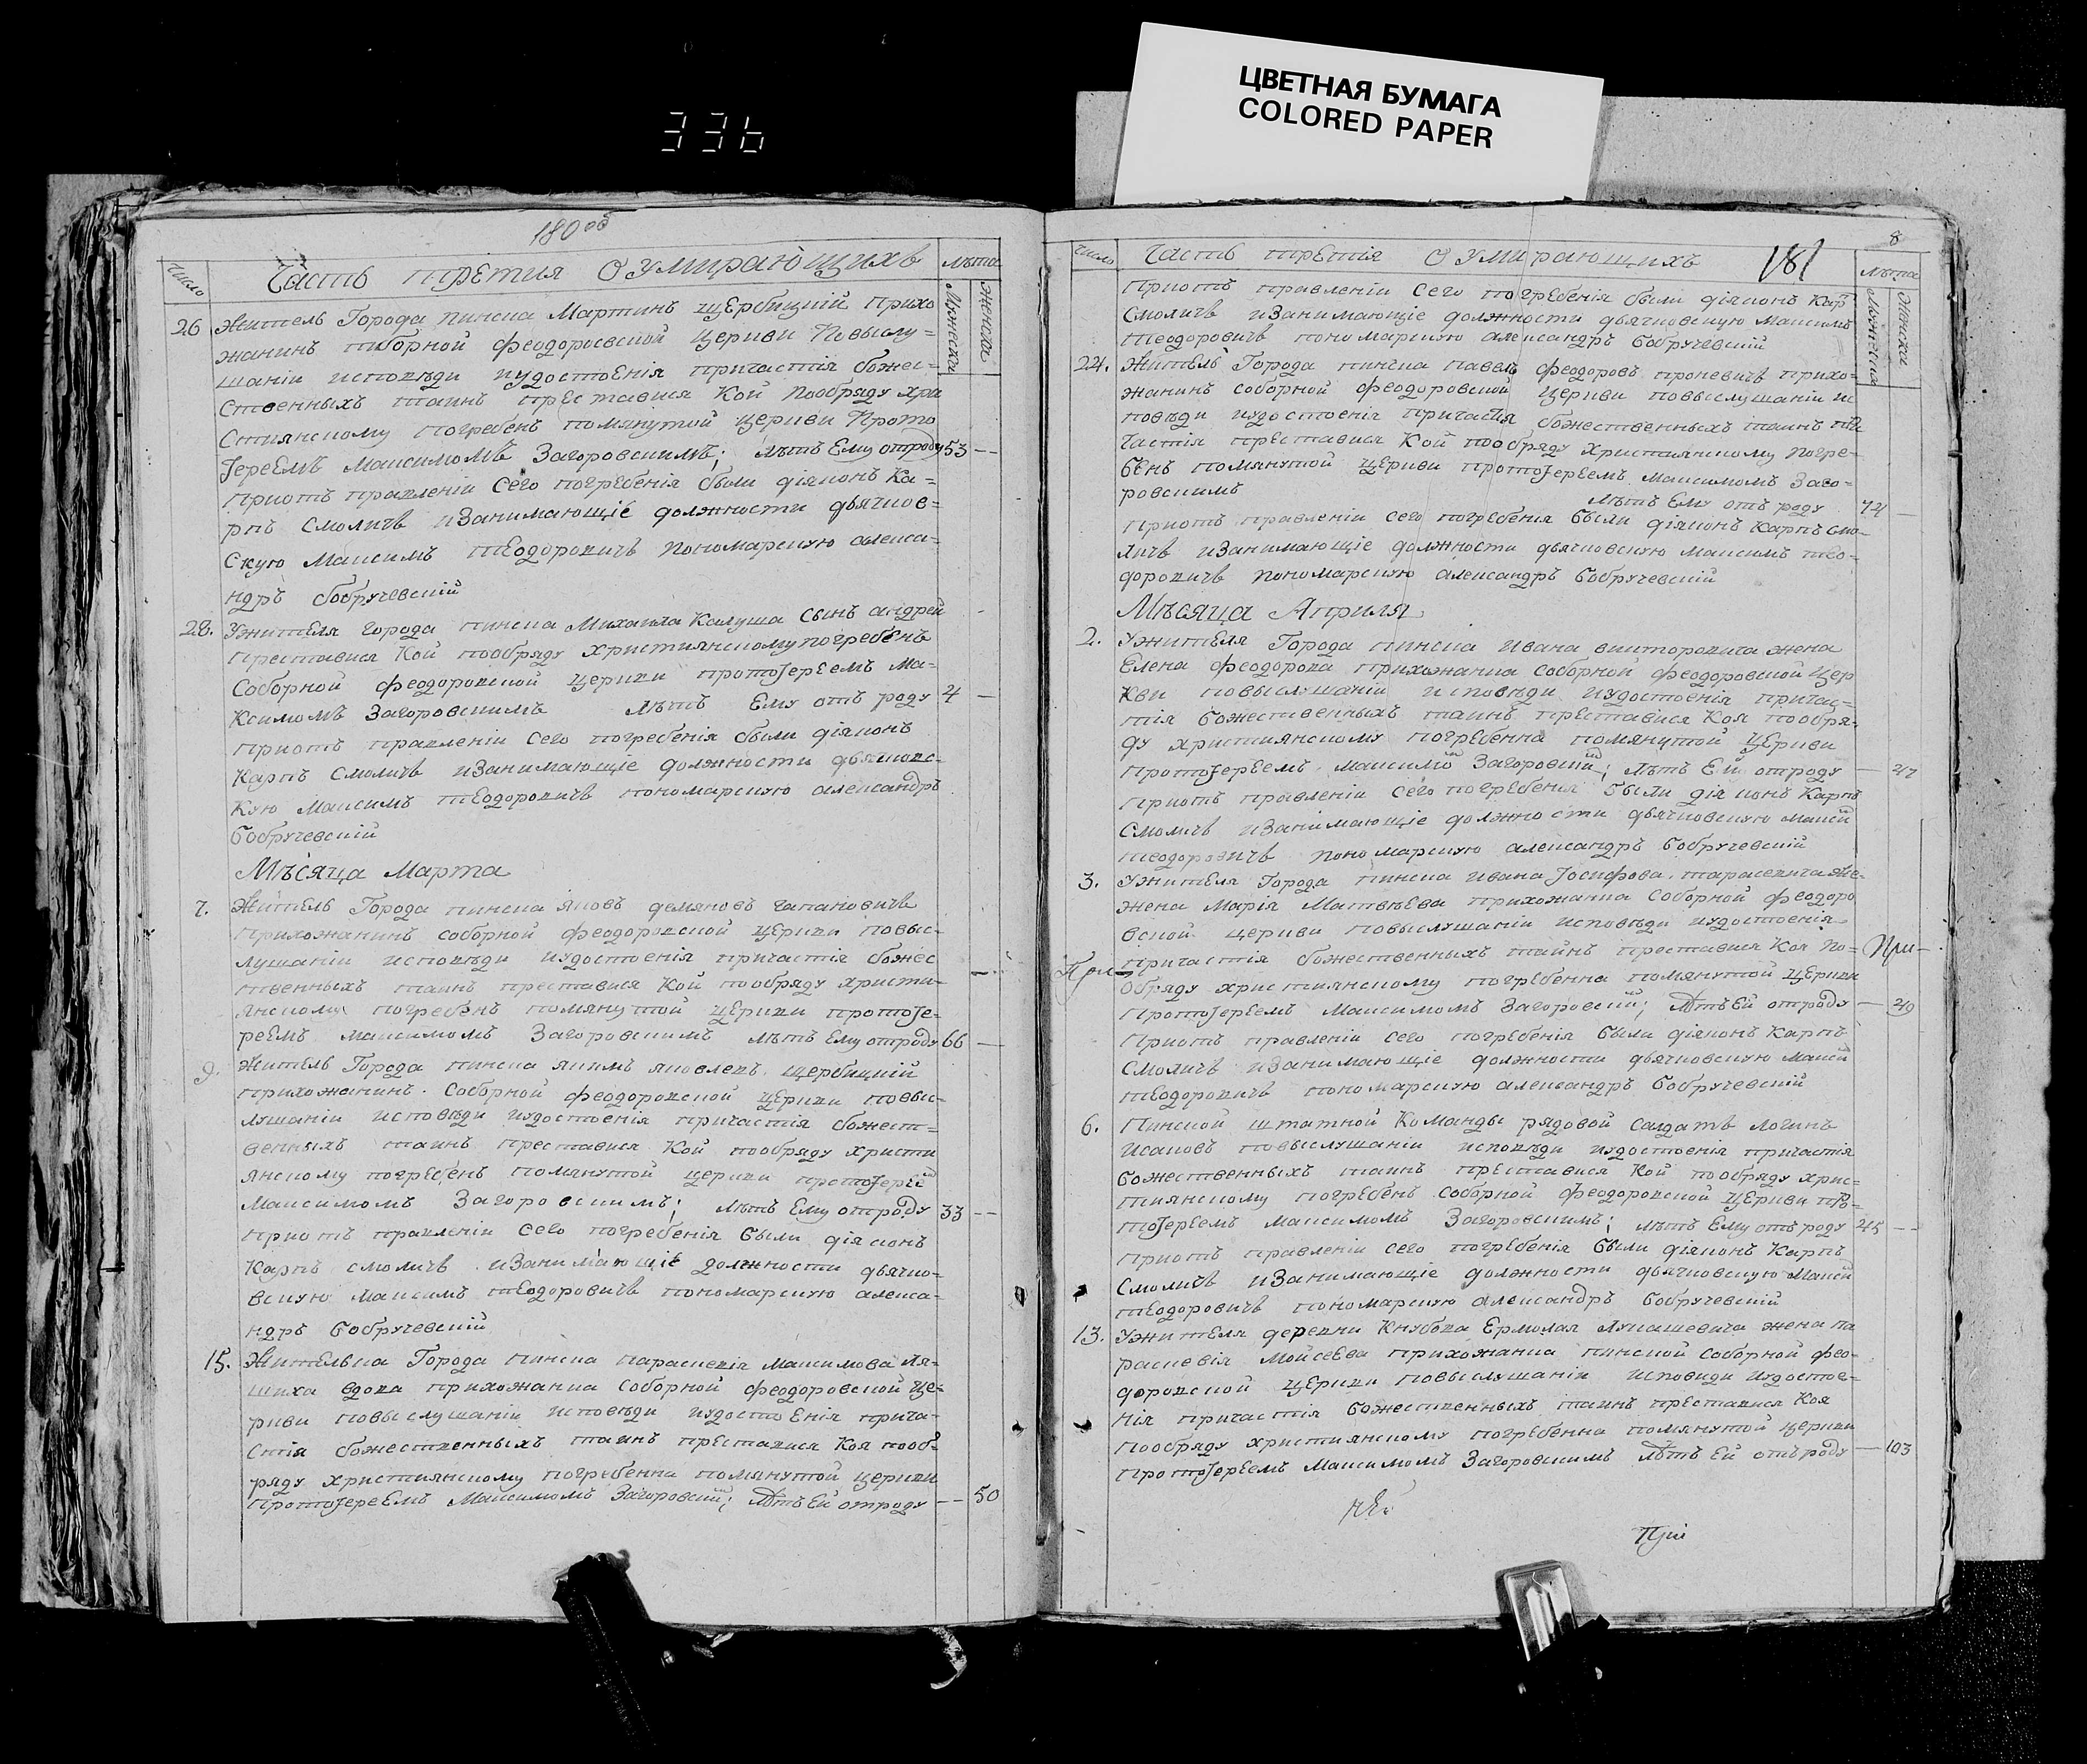 336
ЦВЕТНАЯ БУМАГА
COLORED PAPER
180об
Число Часть третия О умирающихъ Лѣта
Мужеска Женска
26 Житель Города пинска Мартинъ щербицкій прихо
жанинъ пиборной феодоровской церкви Повыслу=
шаніи исповѣди иудостоенія причастія божес=
ственныхъ таинъ преставися Кой пообряду хри
стиянскому погребенъ помянутой церкви Прото
Jереемъ Максимомъ Загоровскимъ; лѣтъ Ему отроду 53 —
Приотъ правленіи Сего погребенія были діяконъ Ка=
рпъ Смоличъ иЗанимающіе должности дьячков=
скую Максимъ теодоровичъ пономарскую алекса=
ндръ бобручевскій
28. Ужителя города пинска Михаила Калуша Сынъ андрей
преставися Кой пообряду християнскому погребенъ
Соборной феодоровской церкви протоJереемъ Ма=
Ксимомъ Загоровскимъ лѣтъ Ему отъ роду 4 —
приотъ правленіи Сего погребенія были діяконъ
Карпъ Смоличъ иЗанимающіе должности дьячковс=
кую Максимъ теодоровичъ пономарскую александръ
бобручевскій
Мѣсяца Марта
7. Житель Города пинска яковъ демяновъ гапановичъ
прихожанинъ соборной феодоровской церкви повыс=
лушаніи исповѣди иудостоенія причастія божес
твенныхъ таинъ преставися Кой пообряду христи=
янскому погребенъ помянутой церкви протоJе=
реемъ максимомъ Загоровскимъ лѣтъ Ему отроду 66 —
9. Житель Города пинска якимъ яковлевъ щербицкій
прихожанинъ Соборной феодоровской церкви повыс=
лушаніи исповѣди иудостоенія причастія божест=
венныхъ таинъ преставися Кой пообряду христи
янскому погребенъ помянутой церкви протоJерей
Максимомъ Загоровскимъ; лѣтъ Ему отроду 33 —
приотъ правленіи Сего погребенія были діяконъ
Карпъ смоличъ иЗанимающіе должности дьячко=
вскую Максимъ теодоровичъ пономарскую алекса=
ндръ бобручевскій
15. Жителька Города пинска параскевія максимова ля=
шиха вдова прихожанка Соборной феодоровской це=
ркви повыслушаніи исповѣди иудостоенія прича=
стія божественныхъ таинъ преставися Коя пооб=
ряду християнскому погребенна помянутой церкви
ПротоJереемъ Максимомъ Загоровскій; Лѣтъ Ей отроду — 50
8
Число Часть третія О умирающихъ 181 лѣта
Мужеска Женска
приотъ правленіи Сего погребенія были діяконъ Кар
Смоличъ иЗанимающіе должности дьячковскую Максимъ
теодоровичъ пономарскую александръ бобручевскій
24. Житель Города пинска павелъ феодоровъ проневичъ прихо=
жанинъ соборной феодоровской церкви повыслушаніи ис
повѣди иудостоенія причастія божественныхъ таинъ при
частія преставися Кой пообряду християнскому погре=
бенъ помянутой церкви протоJереемъ Максимомъ Заго=
ровскимъ лѣтъ Ему отъ роду 74 —
приотъ правленіи сего погребенія были діяконъ Карпъ смо
личъ иЗанимающіе должности дьячковскую максимъ тео=
доровичъ пономарскую александръ бобручевскій
Мѣсяца Априля
2. Ужителя Города пинска ивана викторовича жена
Елена феодорова прихожанка соборной феодоровской Цер
Кви повыслушаніи исповѣди иудостоенія причас=
тія божественныхъ таинъ преставися Коя пообря=
ду християнскому погребенна помянутой церкви
протоJереемъ Максимо Загоровскій; лѣтъ Ей отроду — 47
приотъ правленіи сего погребенія были діяконъ Карпъ
Смоличъ иЗанимающіе должности дьячковскую максй
теодоровичъ пономарскую александръ бобручевскій
3. Ужителя Города пинска ивана Jосифова тарасевича же=
жена Марія Матвѣева прихожанка Соборной феодоро
вской церкви повыслушаніи исповѣди иудостоенія
причастія божественныхъ таинъ преставися Коя по=
обряду християнскому погребенна помянутой церкви
протоJереемъ Максимомъ Загоровскій; Лѣтъ Ей отроду — 49
приотъ правленіи сего погребенія были діяконъ Карпъ
Смоличъ иЗанимающіе должности дьячковскую максй
теодоровичъ пономарскую александръ бобручевскій
6. Пинской штатной Команды рядовой салдатъ логинъ
исаковъ повыслушаніи исповѣди иудостоенія причастія
божественныхъ таинъ преставися Кой пообряду хрис=
тиянскому погребенъ соборной феодоровской церкви про=
тоJереемъ максимомъ Загоровскимъ; лѣтъ Ему отъ роду 45 —
приотъ правленіи сего погребенія были діяконъ Карпъ
Смоличъ иЗанимающіе должности дьячковскую Максй
теодоровичъ пономарскую александръ бобручевскій
13. Ужителя деревни Кнубова Ермолая лукашевича жена па
раскевія Мойсеева прихожанка пинской соборной фео=
доровской церкви повыслушаніи исповиди иудостое=
нія причастія божественныхъ таинъ преставися Коя
пообряду християнскому погребенна помянутой церкви
протоJереемъ Максимомъ Загоровскимъ Лѣтъ Ей отъ роду — 103
При